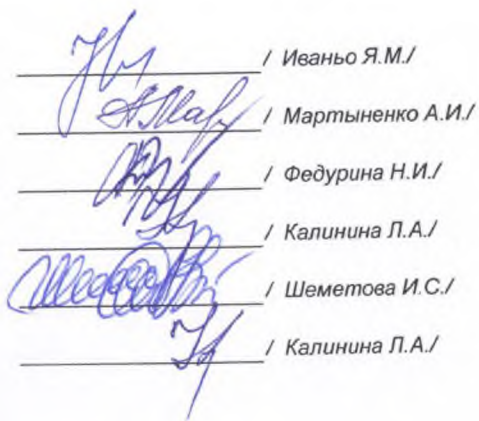 / Иваньо Я.М./
/ Мартыненко А.И./
/ Федурина Н.И./
/ Калинина Л.А./
/ Шеметова И.С./
/ Калинина Л.А./